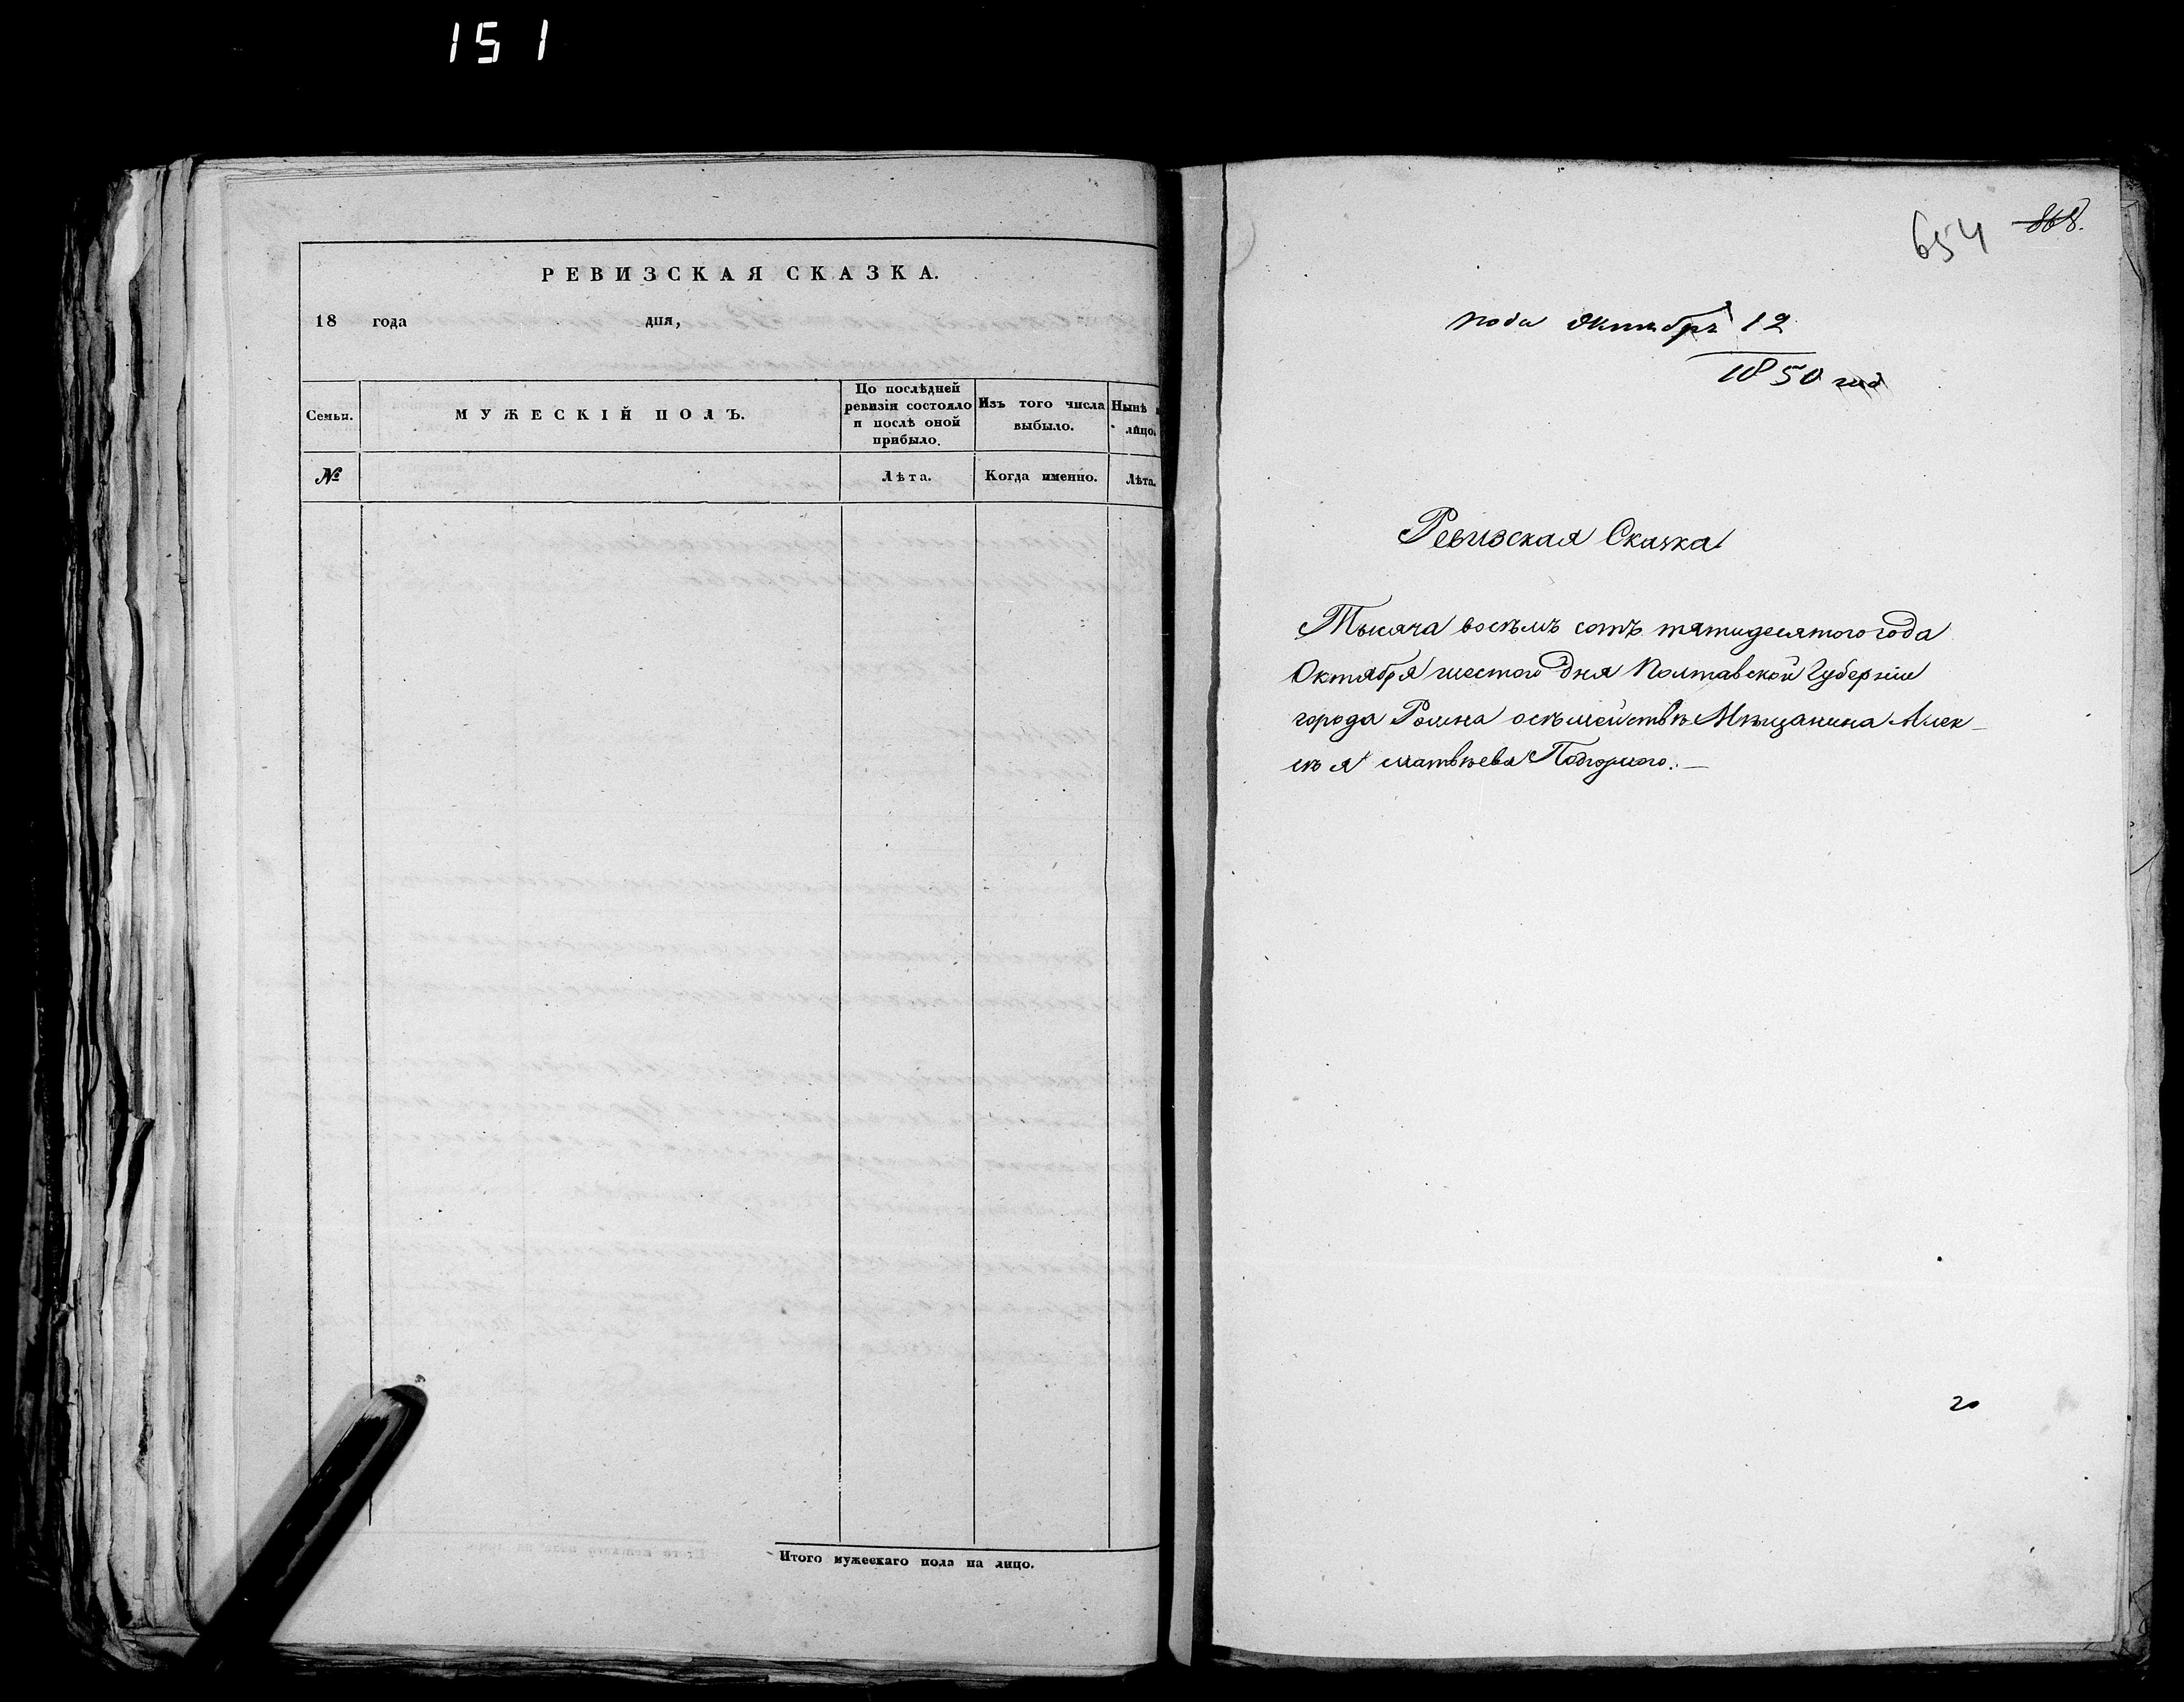 151
РЕВИЗСКАЯ СКАЗКА.
18 года дня,
Семьи.
МУЖЕСКІЙ ПОЛЪ.
По послѣдней ревизіи состояло и послѣ оной прибыло.
Изъ того числа выбыло.
Нынѣ
лицо.
№
Лѣта.
Когда именно.
Лѣта.
Итого мужескаго пола на лицо.
654 868.
пода Октября 12
1850 год
Ревизская Сказка
Тысяча восѣмъ сотъ пятидесятого года
Октября шестого дня Полтавской Губерніи
города Ромна осѣмействѣ Мѣщанина Алек-
сѣя матвѣева Подгорного.—
20